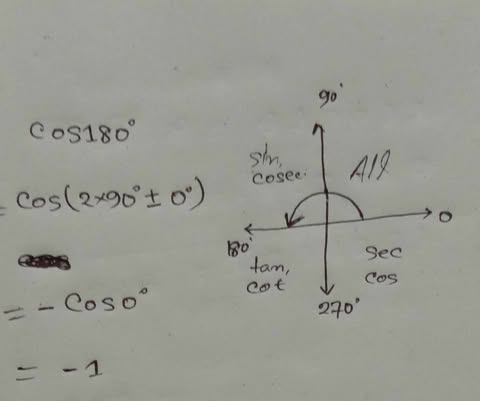 cos180°
= cos(2×90°± 0°)
= -cos0°
= -1
90°
sin,
cosec.
All
180°
0
tan,
cot
sec
cos
270°